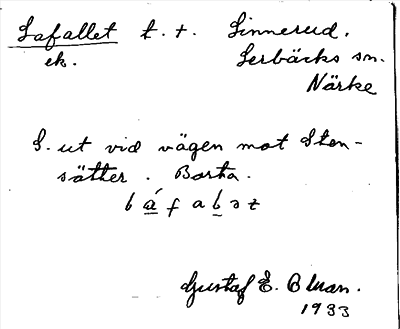 Lafallet t. t. Linnerud.
ek. Lerbäcks sn.
Närke
S. ut vid vägen mot Sten-
sätter. Borta.
Gustaf E. Oman.
1933